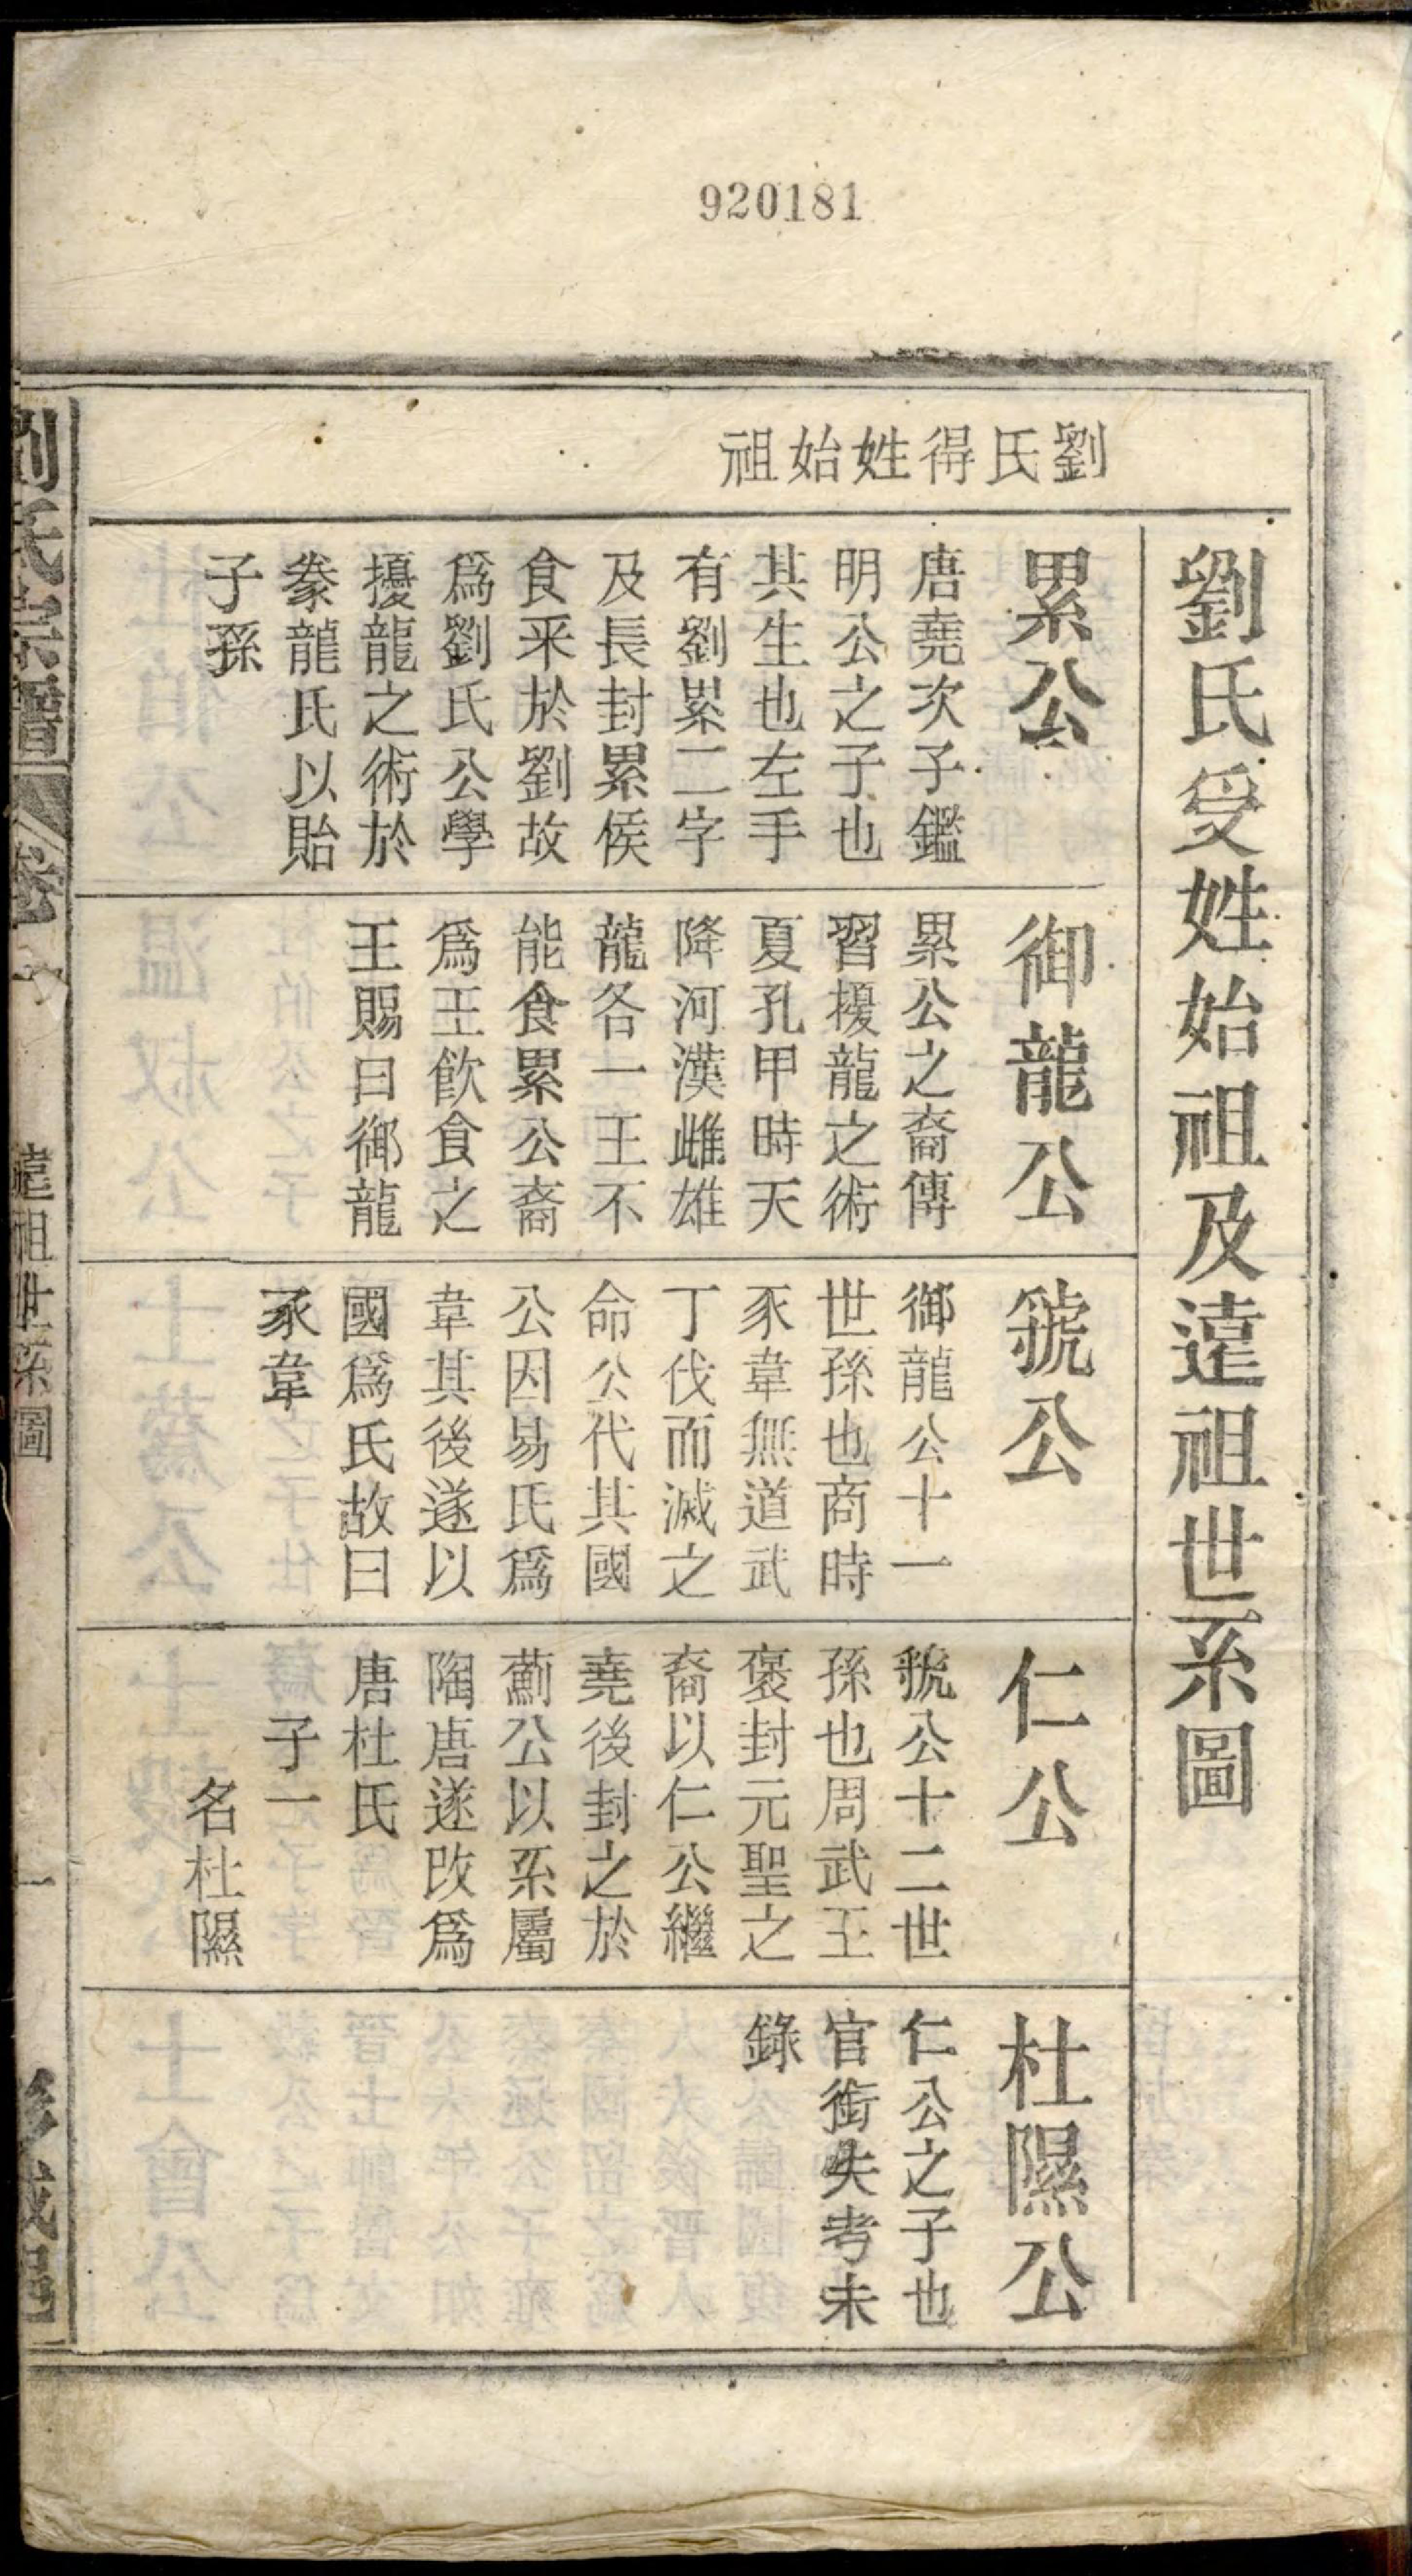 920181
劉氏得姓始祖
劉氏受姓始祖及遠祖世系圖
累公
唐堯次子鑑
明公之子也
其生也左手
有劉累二字
及長封累侯
食采於劉故
爲劉氏公學
擾龍之術於
豢龍氏以貽
子孫
御龍公
累公之裔傳
習擾龍之術
夏孔甲時天
降河漢雌雄
龍各一王不
能食累公裔
爲王飲食之
王賜曰御龍
虢公
御龍公十一
世孫也商時
豕韋無道武
丁伐而滅之
命公代其國
公因易氏爲
韋其後遂以
國爲氏故曰
豕韋
仁公
虢公十二世
孫也周武王
褒封元聖之
裔以仁公繼
堯後封之於
薊公以系屬
陶唐遂改爲
唐杜氏
子一
名杜隰
杜隰公
仁公之子也
官銜失考未
錄
劉氏宗譜
卷一
遠祖世系圖
一